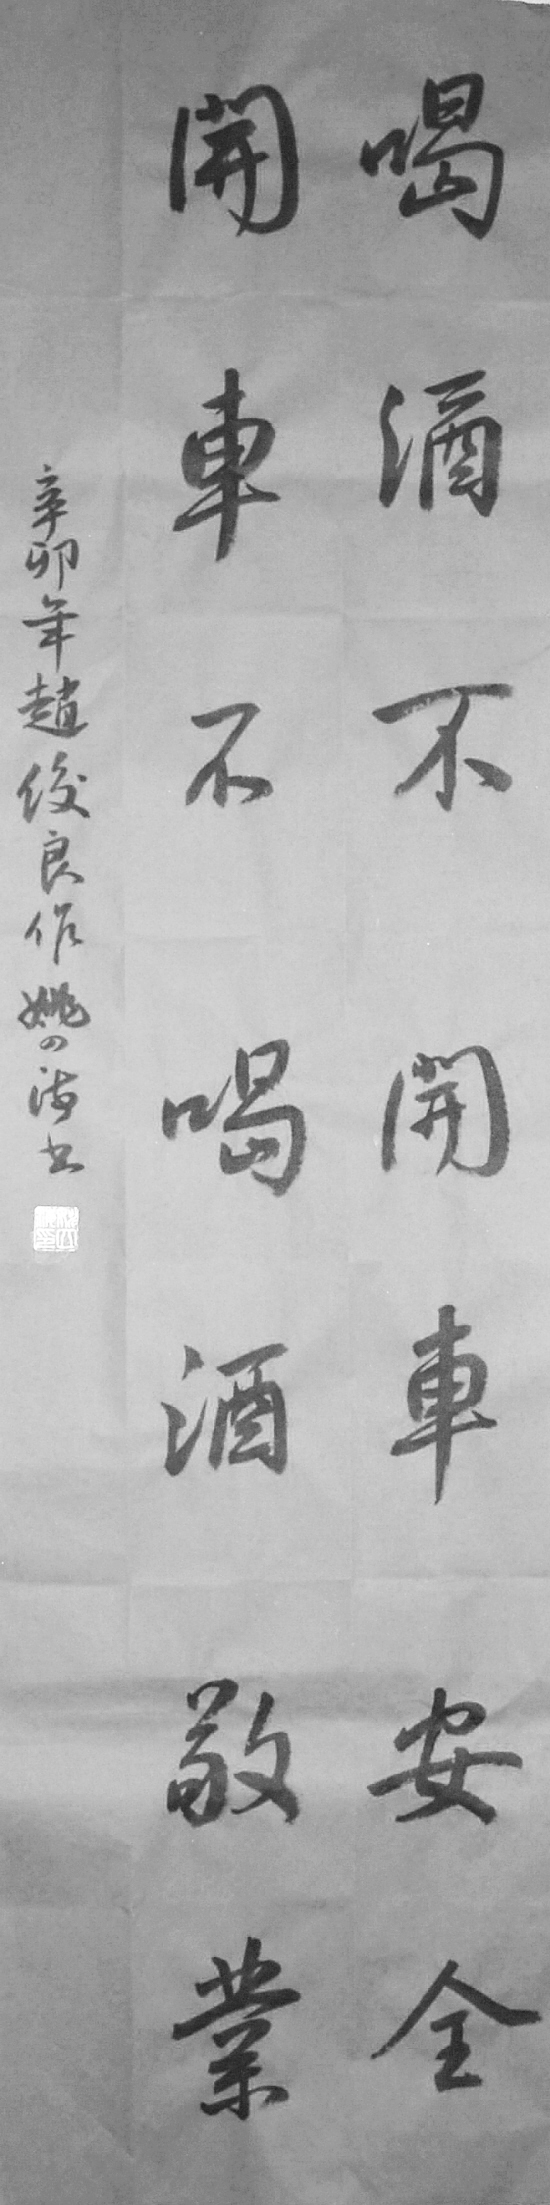 喝酒不開車安全
開車不喝酒敬業
辛卯年趙俊良作姚四海书